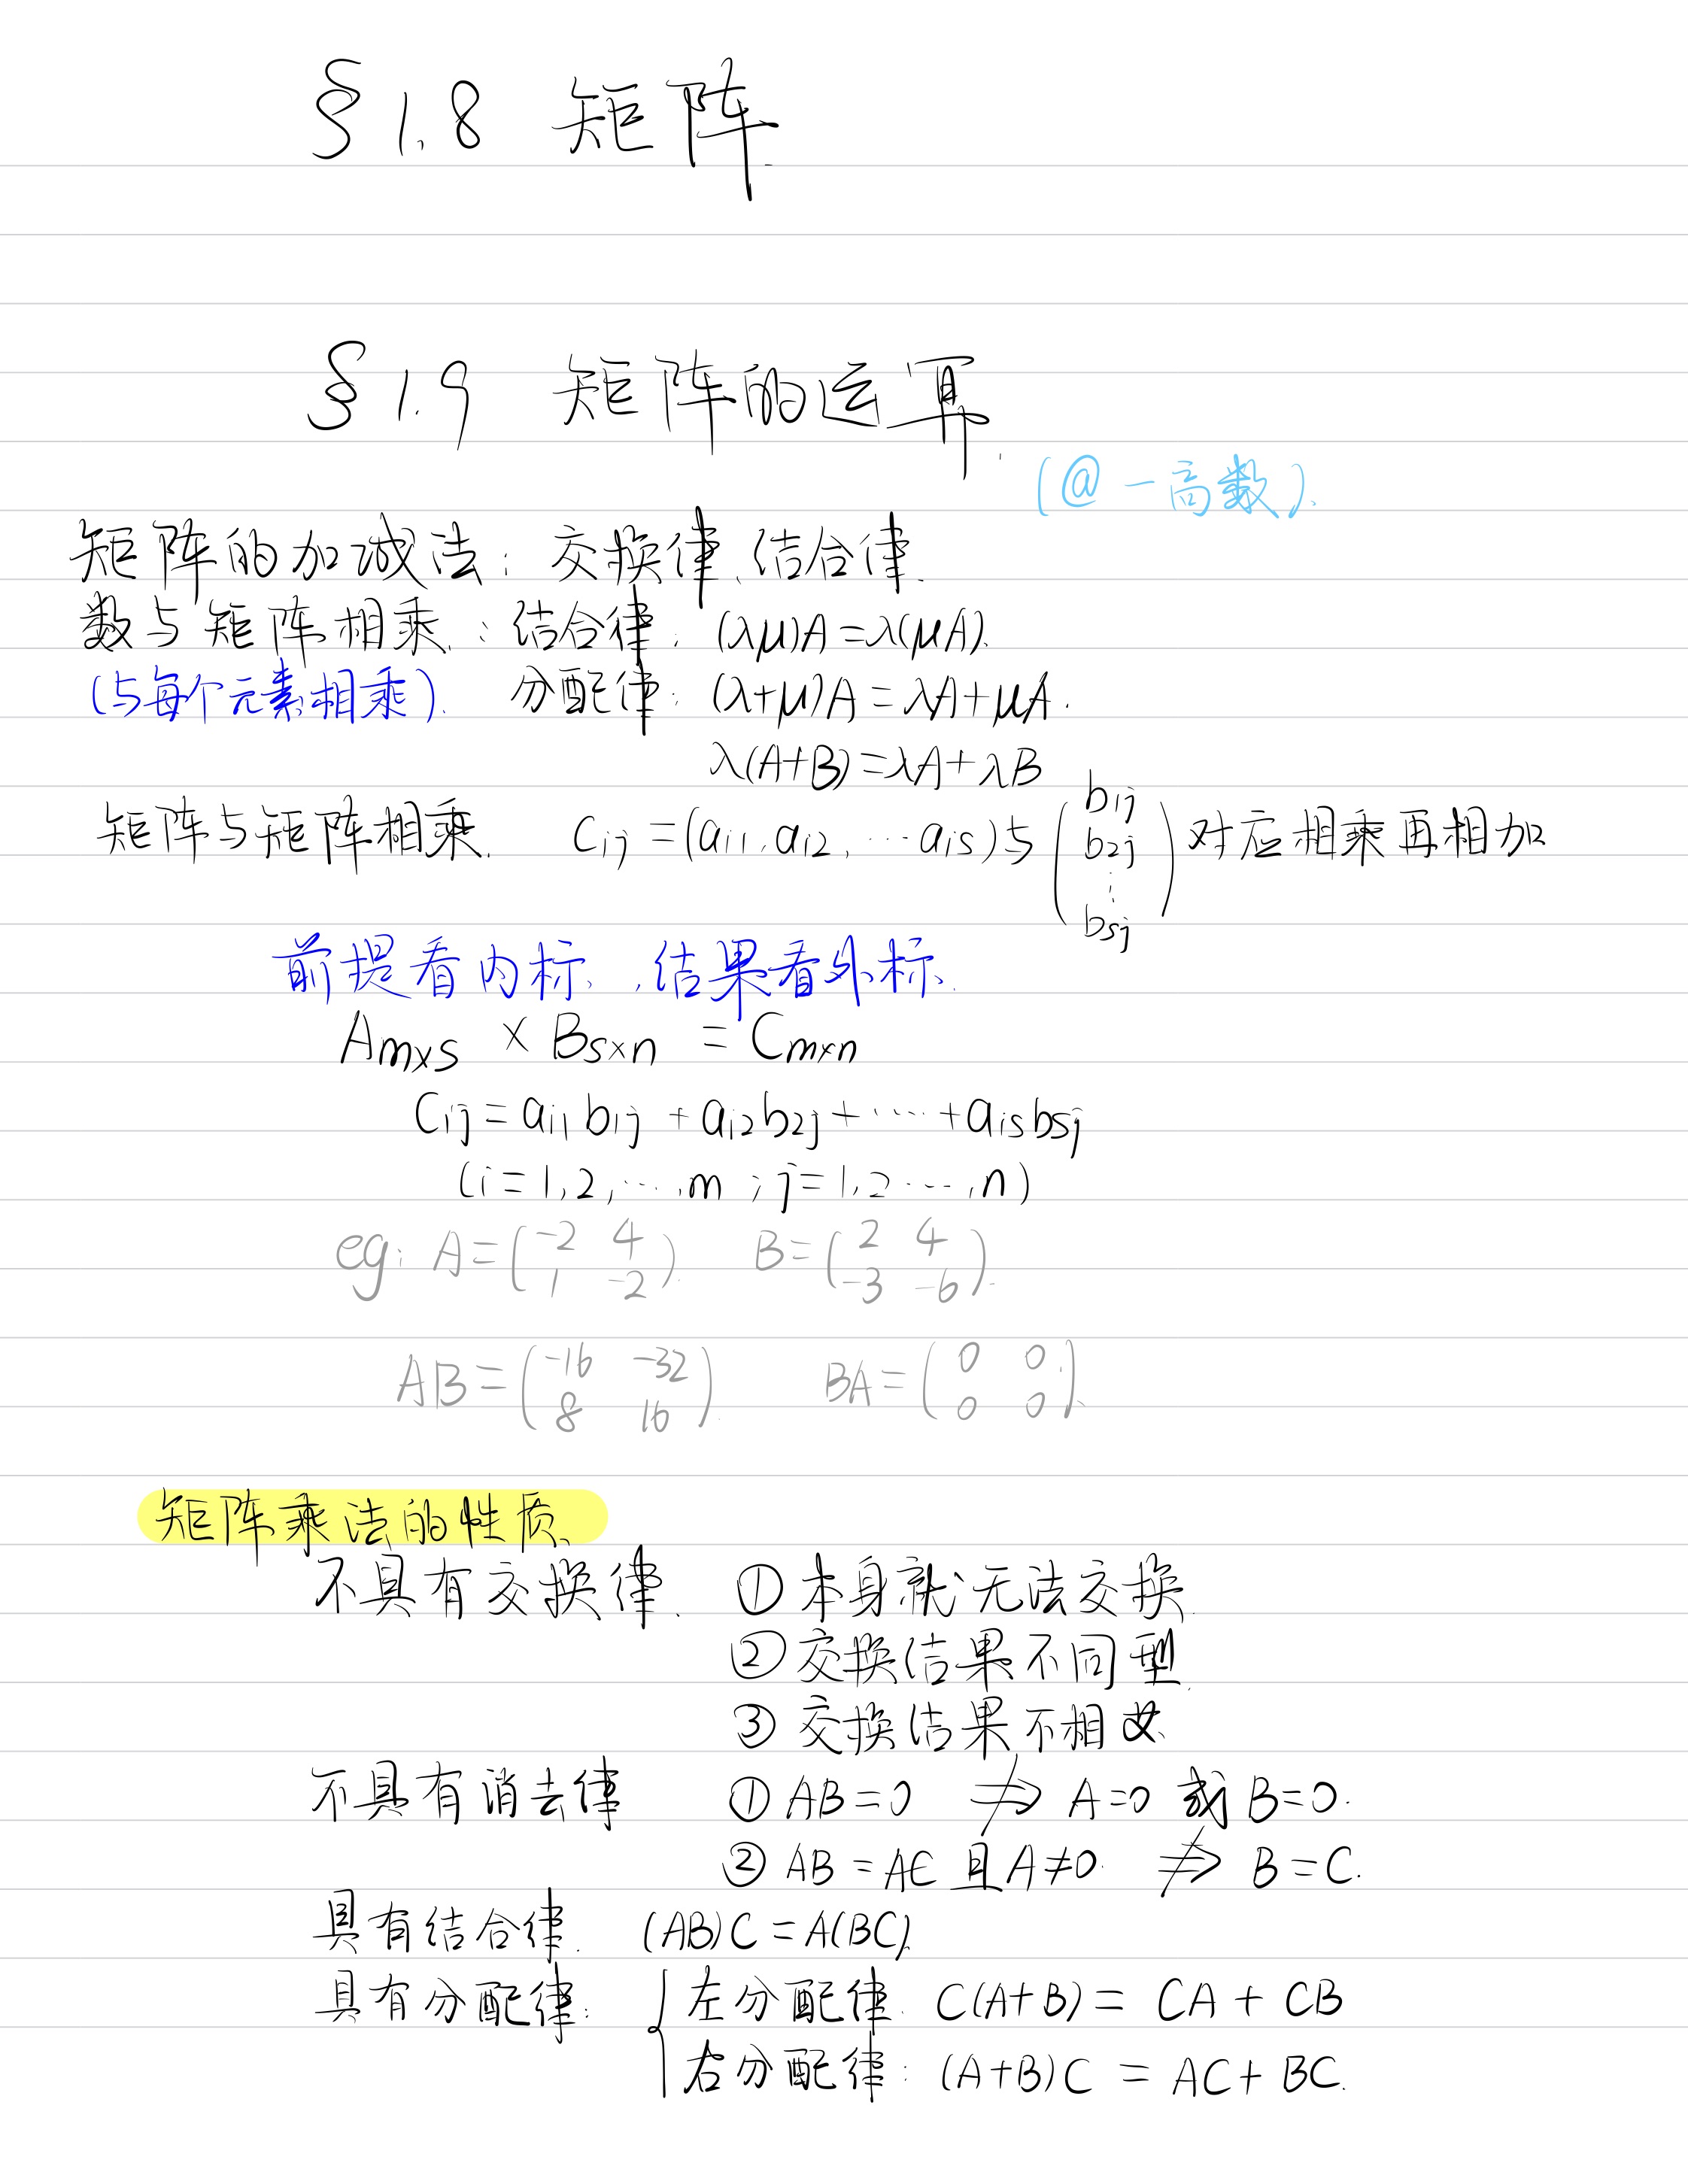 §1.8 矩阵
§1.9 矩阵的运算.
(@一高数).
矩阵的加减法: 交换律、结合律.
数与矩阵相乘.: 结合律: (λμ)A=λ(μA).
(与每个元素相乘). 分配律: (λ+μ)A=λA+μA.
λ(A+B)=λA+λB
矩阵与矩阵相乘. Cij=(ai1, ai2, ⋯ ais)与(b1j b2j ⋮ bsj)对应相乘再相加
前提看内标, 结果看外标.
Am×s × Bs×n = Cm×n
Cij=ai1b1j + ai2b2j + ⋯ + aisbsj
(i=1,2,⋯,m ; j=1,2⋯,n)
eg: A=(-2 4
1 -2). B=(2 4
-3 -6).
AB=(-16 -32
8 16). BA=(0 0
0 0).
矩阵乘法的性质.
不具有交换律. ①本身就无法交换.
②交换结果不同型.
③交换结果不相
不具有消去律 ①AB=0 ⇏ A=0 或 B=0.
②AB=AC 且A≠0. ⇏ B=C.
具有结合律. (AB)C=A(BC).
具有分配律: { 左分配律. C(A+B)= CA + CB
右分配律: (A+B)C = AC+ BC.